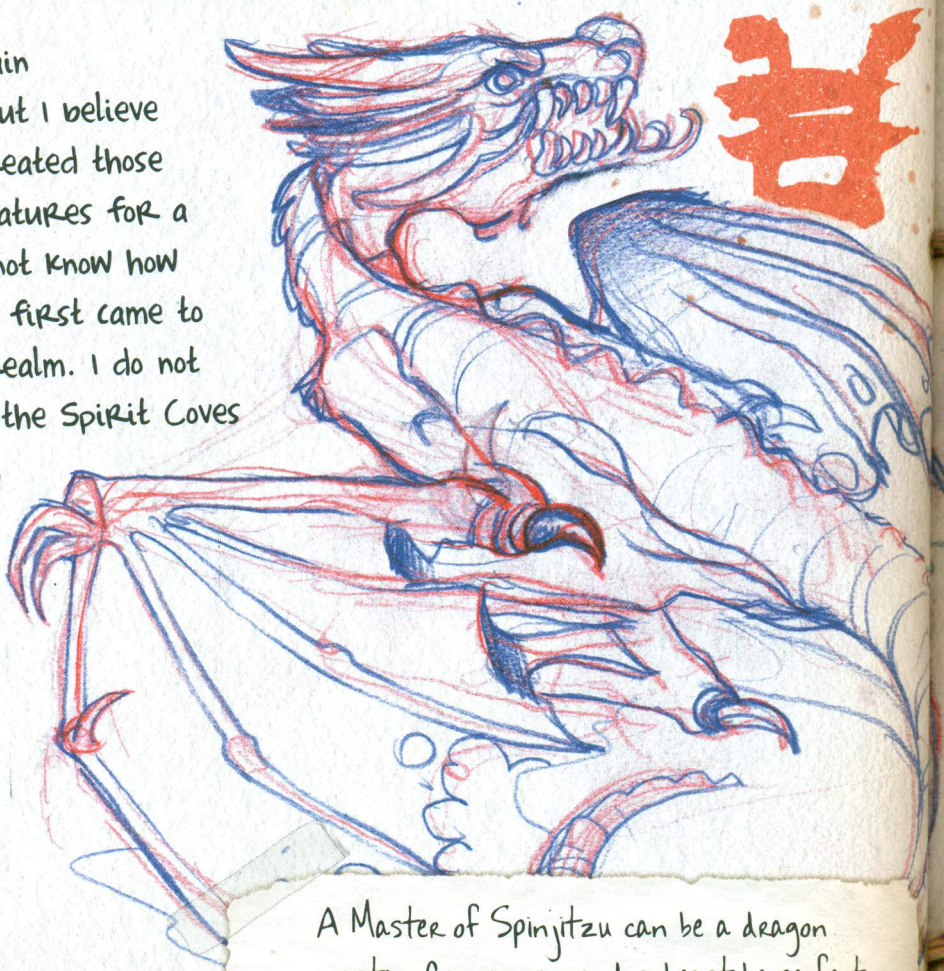 ain
ut I believe
eated those
atures for a
not know how
first came to
ealm. I do not
the Spirit Coves
A Master of Spinjitzu can be a dragon